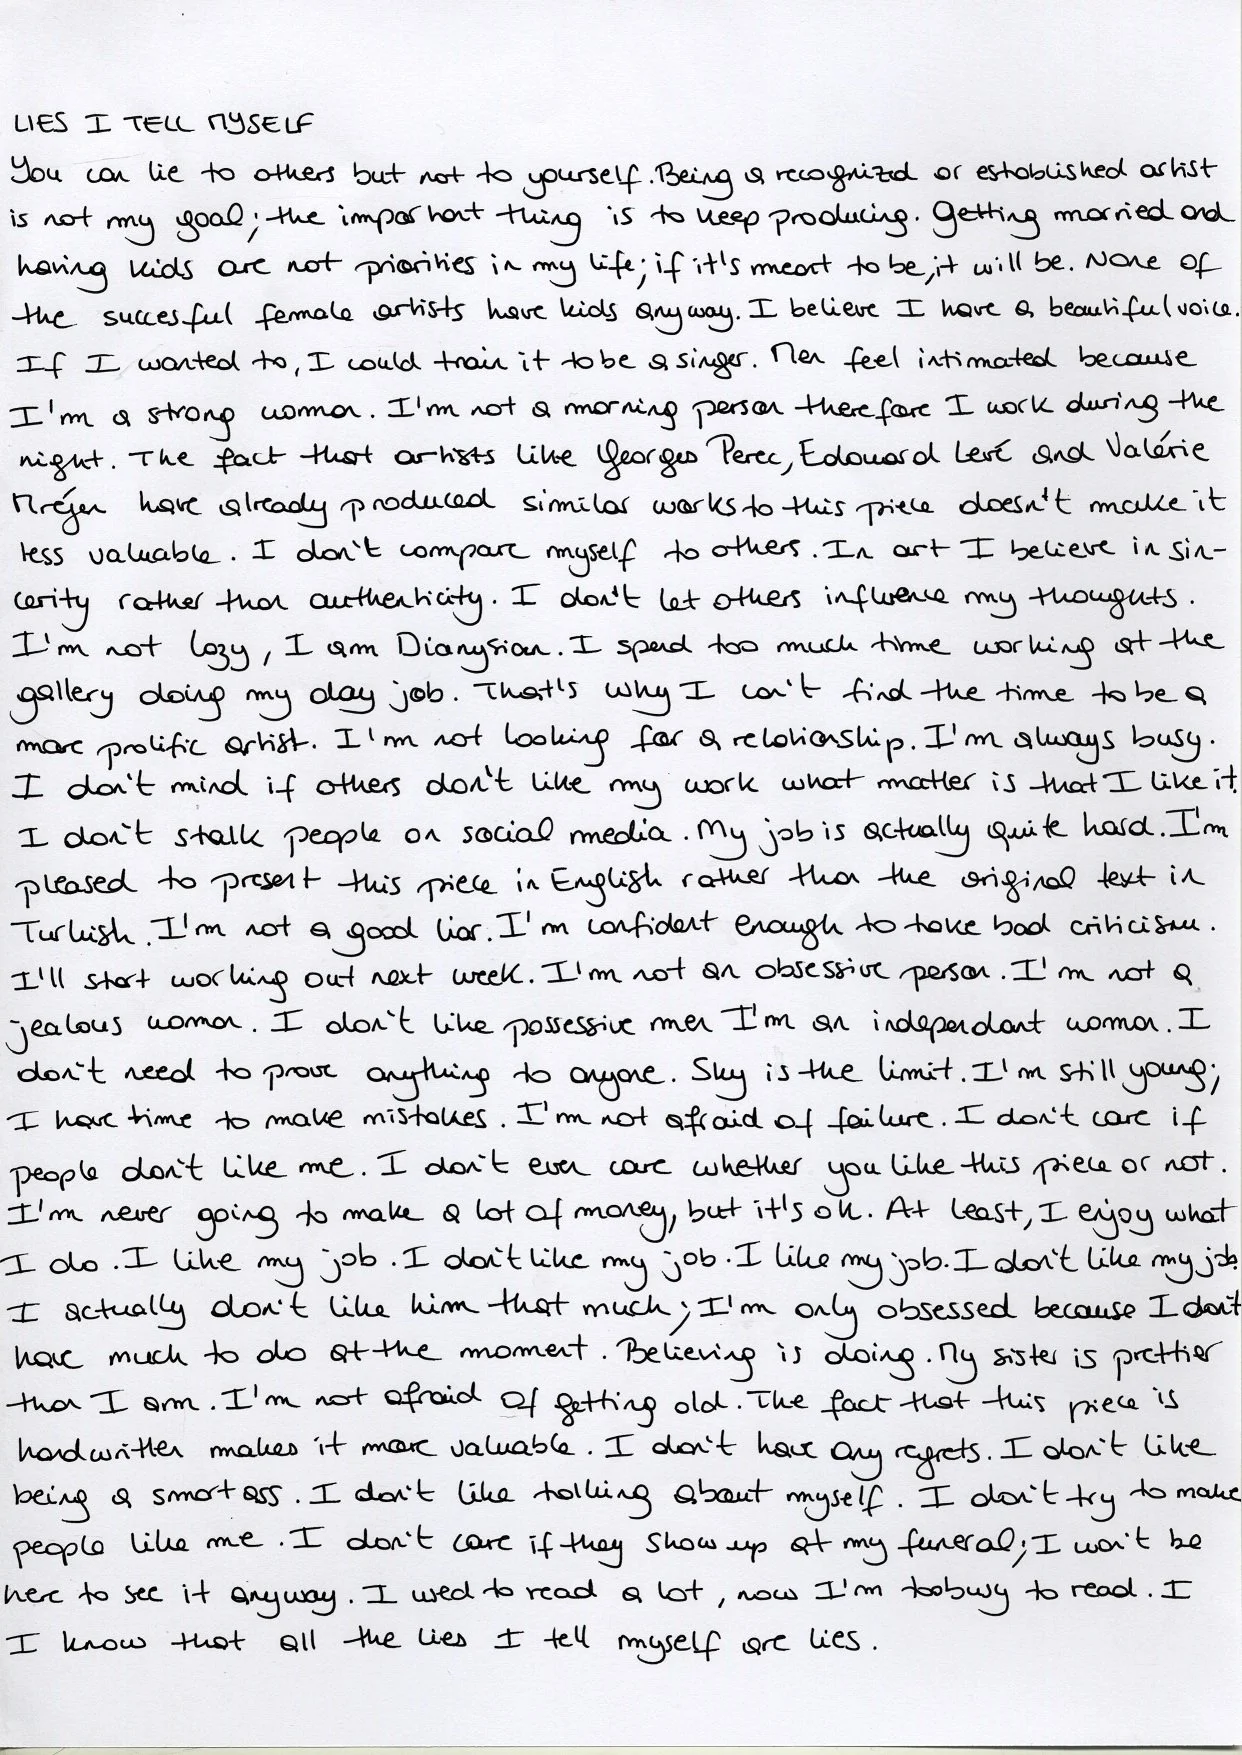 LIES I TELL MYSELF
You can lie to others but not to yourself. Being a recognized or established artist
is not my goal; the important thing is to keep producing. Getting married and
having kids are not priorities in my life; if it's meant to be, it will be. None of
the succesful female artists have kids anyway. I believe I have a beautiful voice.
If I wanted to, I could train it to be a singer. Men feel intimated because
I'm a strong woman. I'm not a morning person therefore I work during the
night. The fact that artists like Georges Perec, Edouard Levé and Valérie
Mréjen have already produced similar works to this piece doesn't make it
less valuable. I don't compare myself to others. In art I believe in sin-
cerity rather than authenticity. I don't let others influence my thoughts.
I'm not lazy, I am Dianysian. I spend too much time working at the
gallery doing my day job. That's why I can't find the time to be a
more prolific artist. I'm not looking for a relationship. I'm always busy.
I don't mind if others don't like my work what matter is that I like it.
I don't stalk people on social media. My job is actually quite hard. I'm
pleased to present this piece in English rather than the original text in
Turkish. I'm not a good liar. I'm confident enough to take bad criticism.
I'll start working out next week. I'm not an obsessive person. I'm not a
jealous woman. I don't like possessive men I'm an independant woman. I
don't need to prove anything to anyone. Sky is the limit. I'm still young;
I have time to make mistakes. I'm not afraid of failure. I don't care if
people don't like me. I don't even care whether you like this piece or not.
I'm never going to make a lot of money, but it's ok. At least, I enjoy what
I do. I like my job. I don't like my job. I like my job. I don't like my job.
I actually don't like him that much; I'm only obsessed because I don't
have much to do at the moment. Believing is doing. My sister is prettier
than I am. I'm not afraid of getting old. The fact that this piece is
handwritten makes it more valuable. I don't have any regrets. I don't like
being a smart ass. I don't like talking about myself. I don't try to make
people like me. I don't care if they show up at my funeral; I won't be
here to see it anyway. I used to read a lot, now I'm too busy to read. I
I know that all the lies I tell myself are lies.